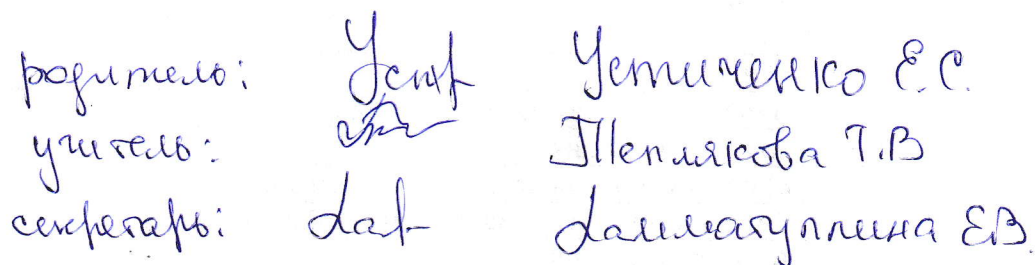 родитель: Устиченко Е.С.
учитель: Теплякова Т.В
секретарь: Хамматуллина Е.В.